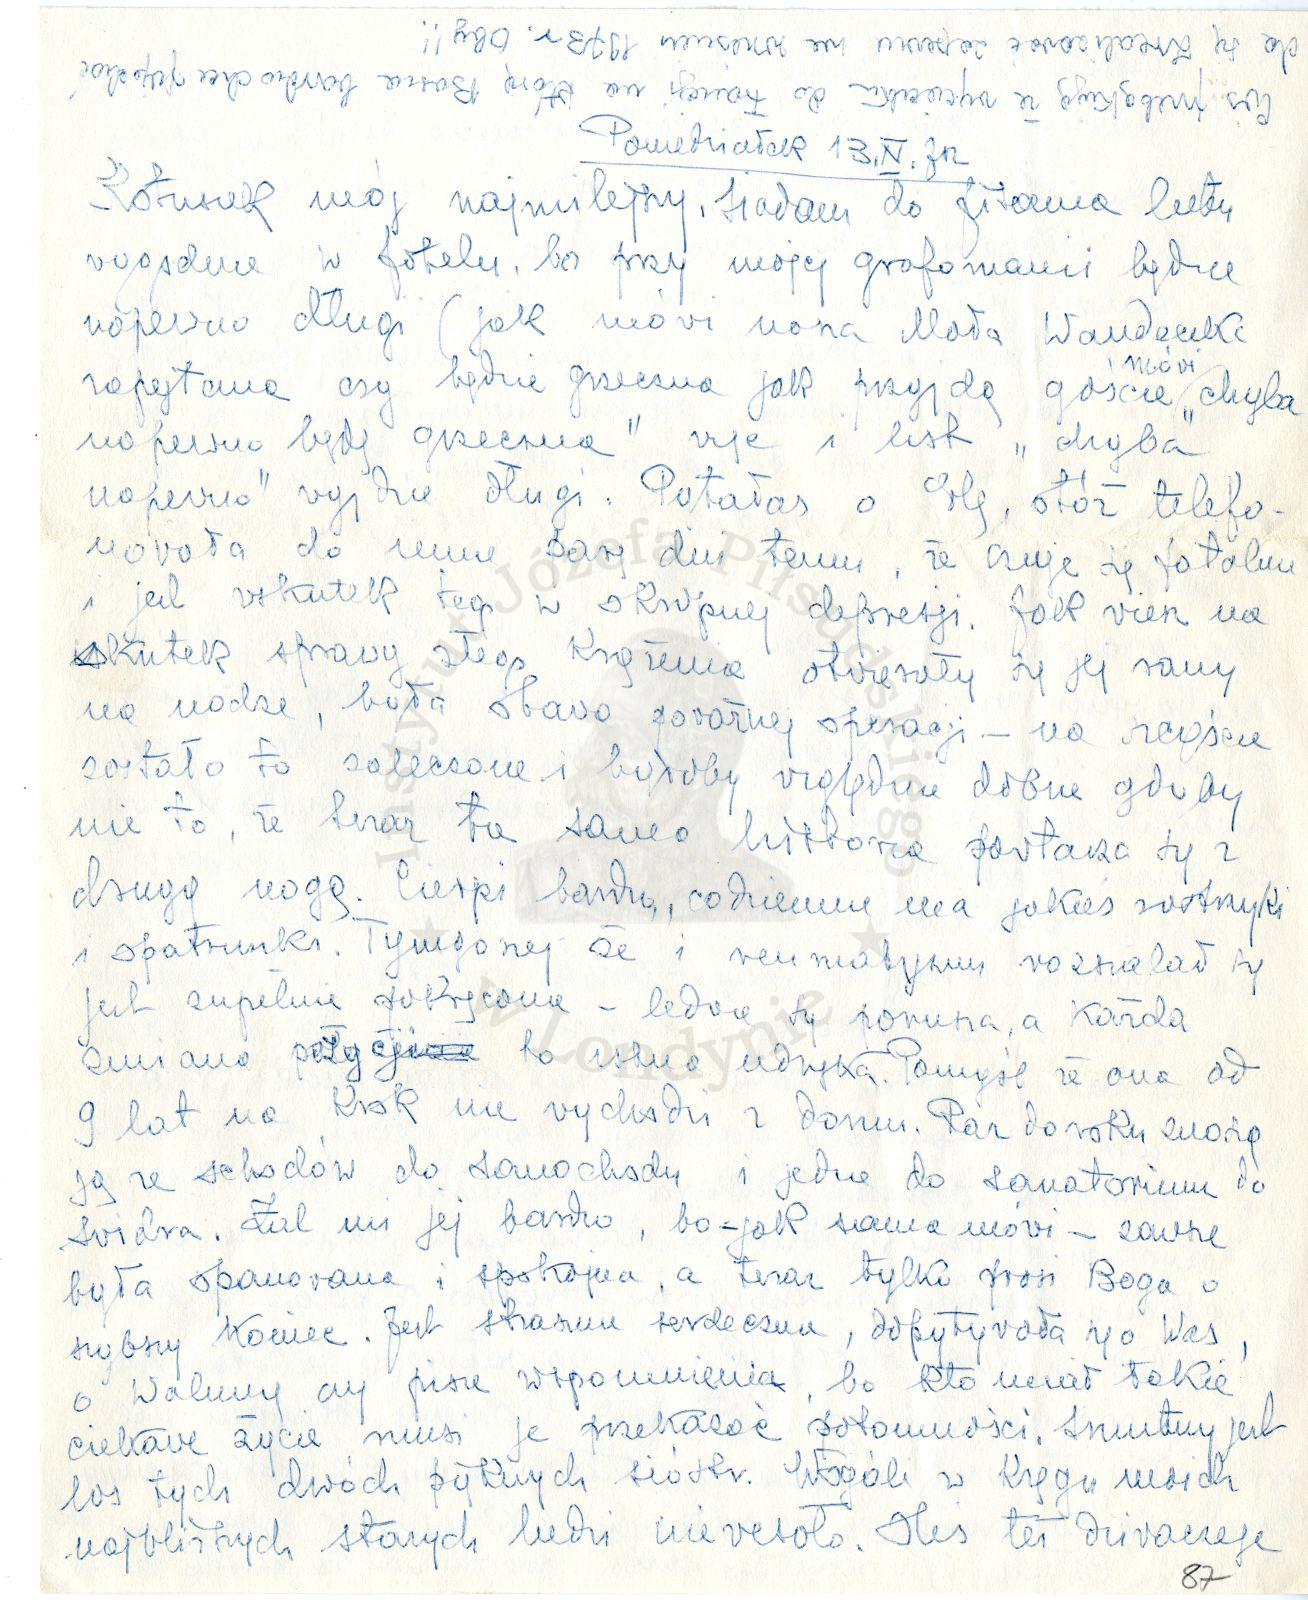 Coś przebąkują że wycieczka do Francji na którą Basia bardzo chce pojechać
da się zrealizować zapewne na wiosnę 1973 r. Oby!!
Poniedziałek 13.IV.
Kotusiek mój najmilejszy, siadam do pisania listu
wygodnie w fotelu, bo przy mojej grafomanii będzie
napewno długi (jak mówi nasza Mała Wandeczka
zapytana czy będzie grzeczna jak przyjdą goście mówi „chyba
napewno będę grzeczna" więc i list „chyba
napewno" wyjdzie długi. Pytałaś o Olę, otóż telefo-
nowała do mnie parę dni temu, że czuje się fatalnie
i jest wskutek tego w okropnej depresji. Jak wiesz na
skutek sprawy złego krążenia otwierały się jej rany
na nodze, była obawa poważnej operacji – na szczęście
zostało to zaleczone i byłoby względnie dobrze gdyby
nie to, że teraz ta sama historia powtarza się z
drugą nogą. Cierpi bardzo, codziennie ma jakieś zastrzyki
i opatrunki. Tymgorzej że i reumatyzm rozszalał się
jest zupełnie pokręcona – ledwie się porusza, a każda
zmiana pozycji to istna udręka. Pomyśl że ona od
9 lat na krok nie wychodzi z domu. Raz do roku znoszą
ją ze schodów do samochodu i jedzie do sanatorium do
Świdra. Żal mi jej bardzo, bo – jak sama mówi – zawsze
była opanowana i spokojna, a teraz tylko prosi Boga o
szybszy koniec. Jest strasznie serdeczna, dopytywała się o Was,
o czy pisze wspomnienia, bo kto miał takie
ciekawe życie musi je przekazać potomności. Smutny jest
los tych dwóch pięknych sióstr. Wogóle w kręgu moich
najbliższych starych ludzi niewesoło. też dziwaczeje
87
Instytut Józefa Piłsudskiego
w Londynie